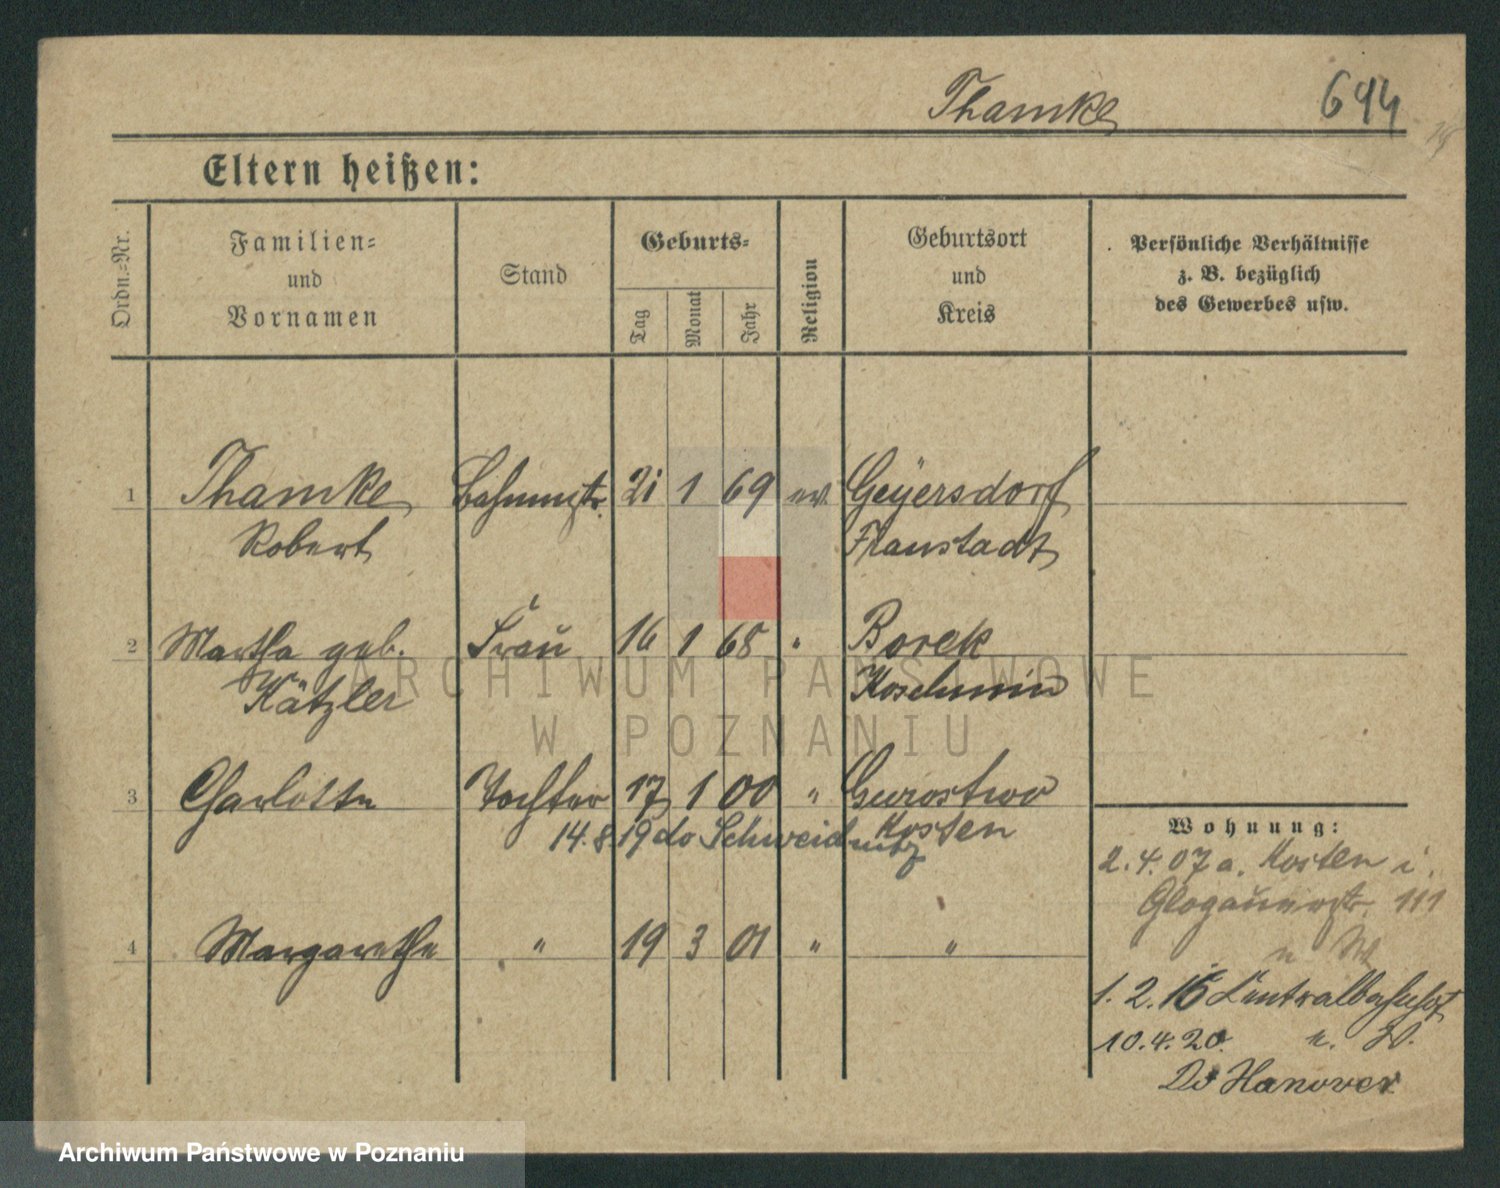 Thamke 694
Eltern heißen:
Ordn.=Nr.
Familien=
und
Vornamen
Stand
Geburts=
Tag
Monat
Jahr
Religion
Geburtsort
und
Kreis
Persönliche Verhältnisse
z. B. bezüglich
des Gewerbes usw.
1 Thamke 21 1 69 ev. Geyersdorf
Robert Fraustadt
2 Martha geb. Frau 16 1 68 " Borek
Kätzler Koschmin
3 Charlotte Tochter 17 1 00 " Gurostwo
14.8.19 do Schweidnitz Kosten
4 Margarethe " 19 3 01 " "
Wohnung:
2.4.07 a. Kosten i.
Glogauerstr. 111
n W
1.2.16 Zentralbahnhof
10.4.20. n. W.
Hanover
ARCHIWUM PAŃSTWOWE
W POZNANIU
Archiwum Państwowe w Poznaniu